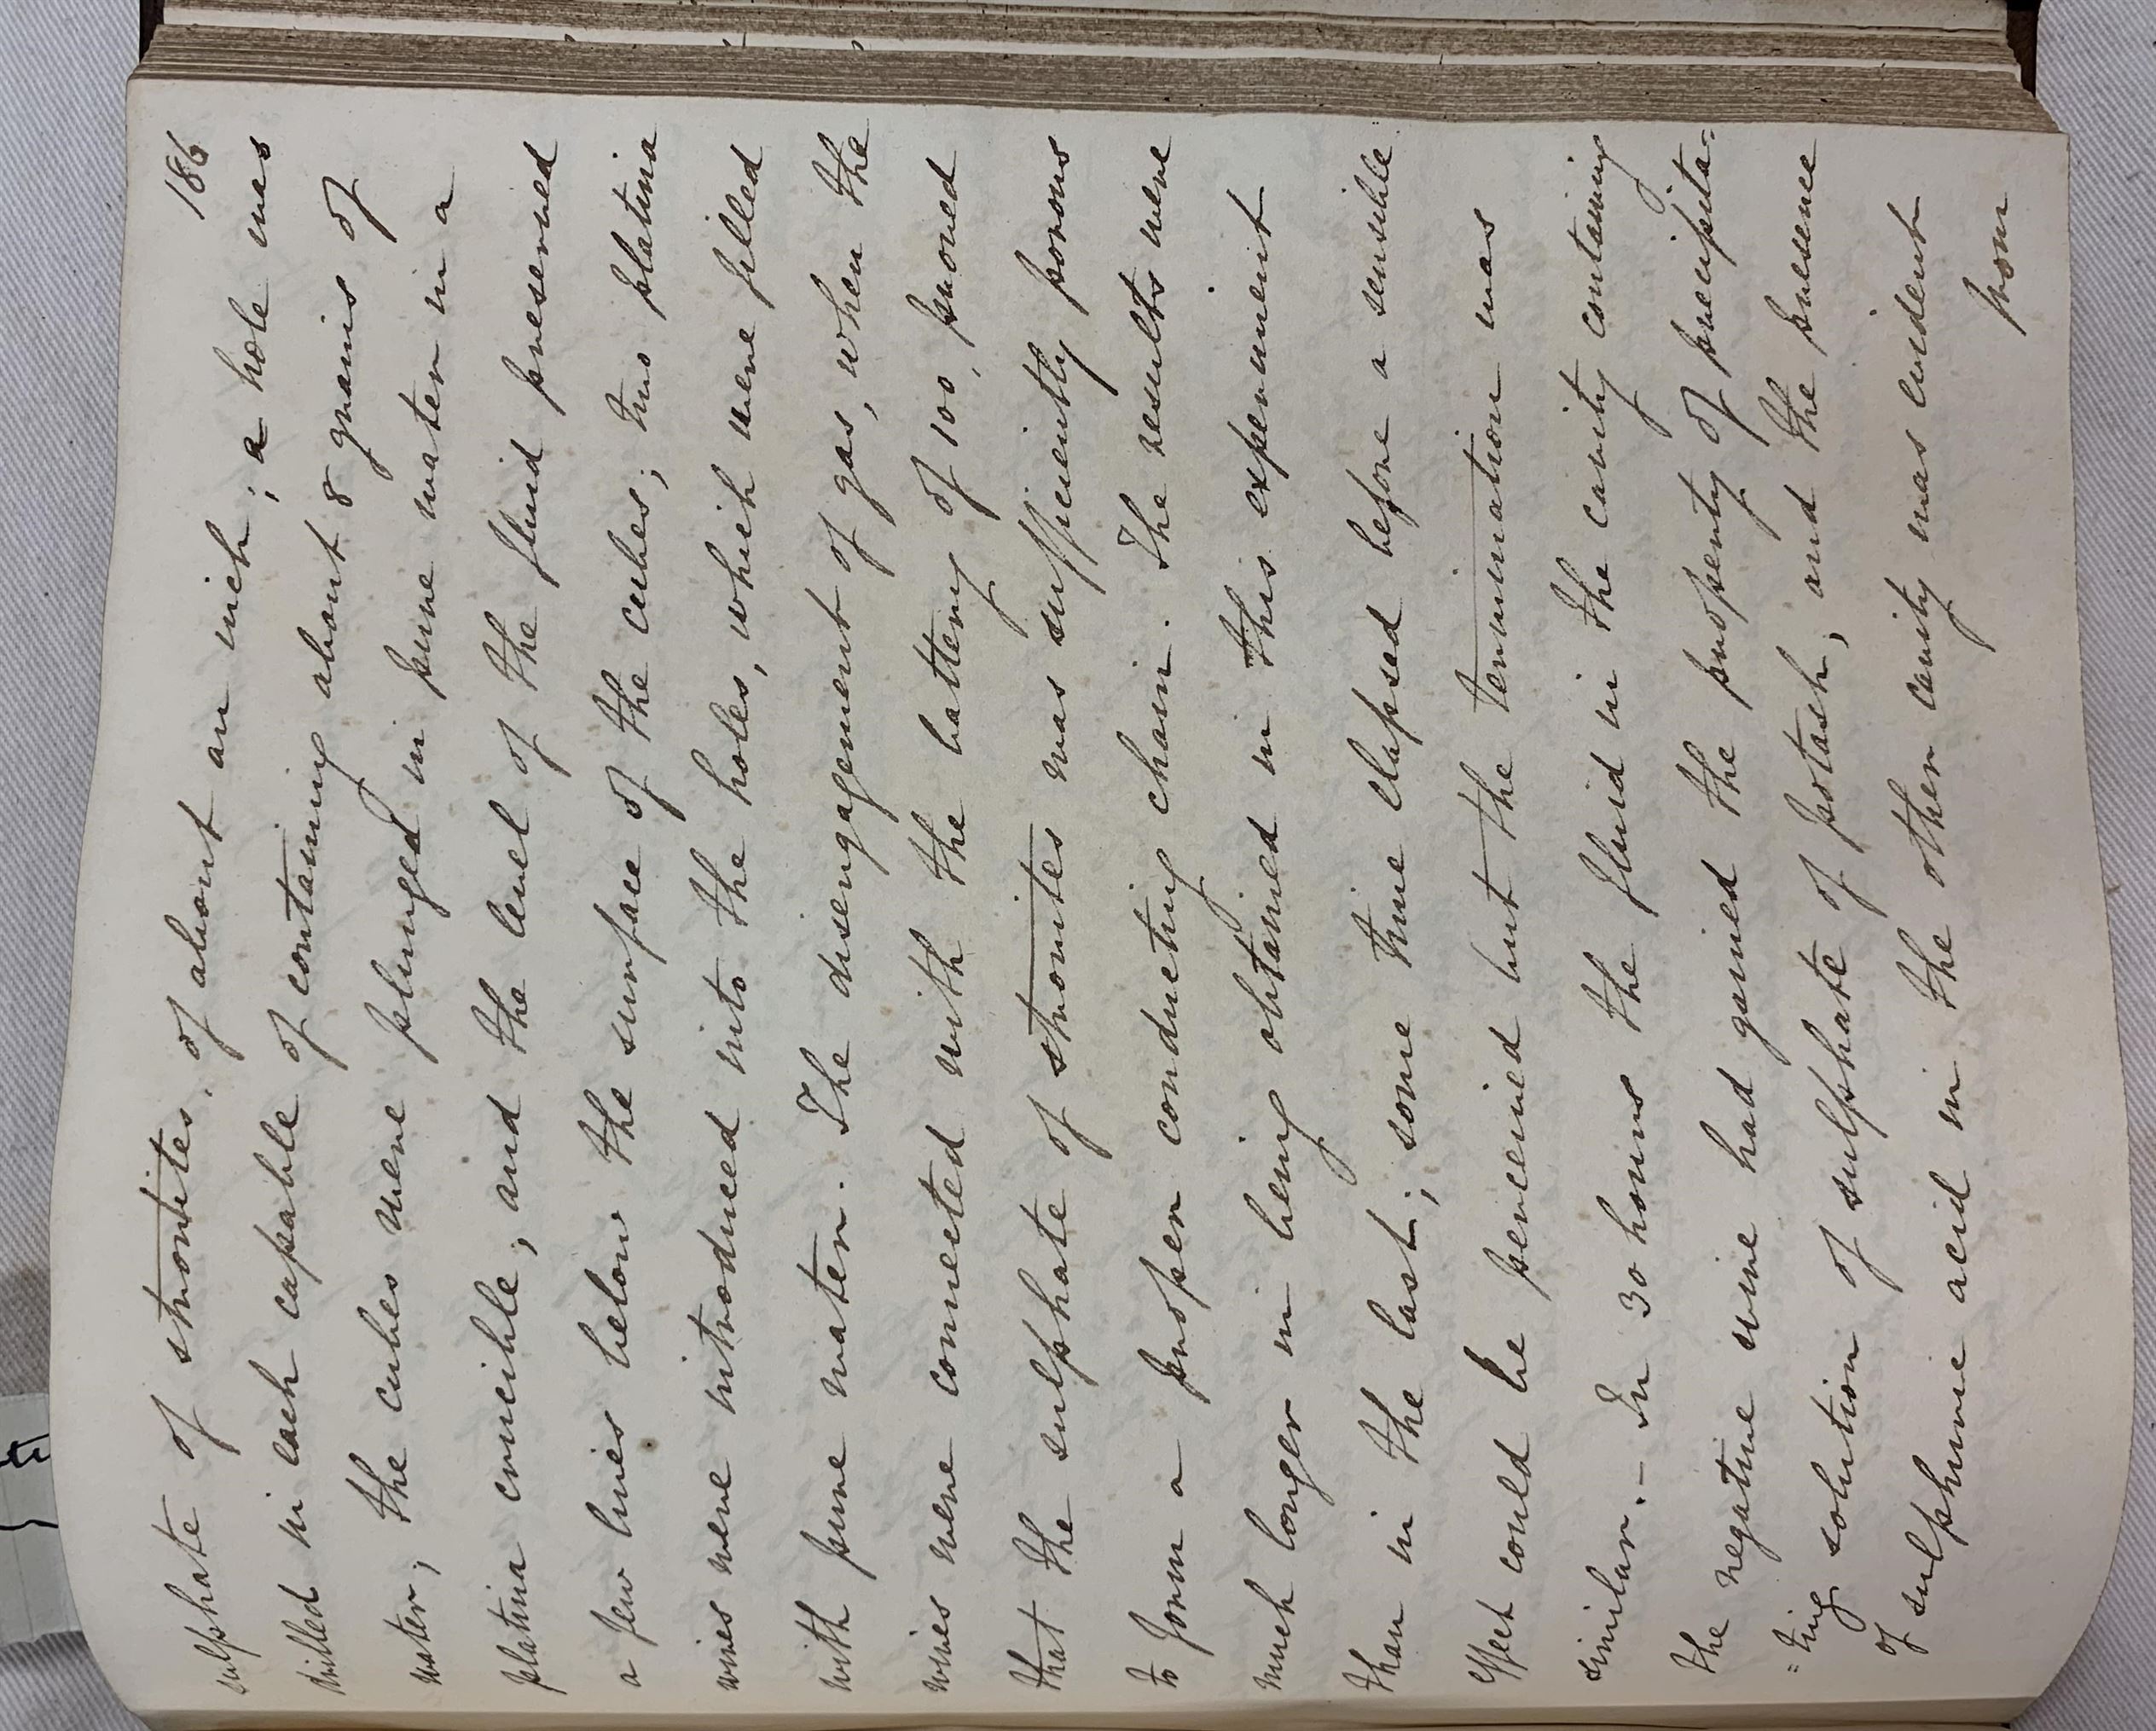 186
sulphate of strontites, of about an inch; a hole was
drilled in each capable of containing about 8 grains of
water; the cubes were plunged in pure water in a
platina crucible, and the level of the fluid preserved
a few lines below the surface of the cubes; two platina
wires were introduced into the holes, which were filled
with pure water. The disengagement of gas, when the
wires were connected with the battery of 100, proved
that the sulphate of strontites was sufficiently porous
to form a proper conducting chain. The results were
much longer in being obtained in this experiment
than in the last; some time elapsed before a sensible
effect could be perceived but the termination was
similar. - In 30 hours the fluid in the cavity containing
the negative wire had gained the property of precipita=
=ting solution of sulphate of potash, and the presence
of sulphuric acid in the other cavity was evident
from